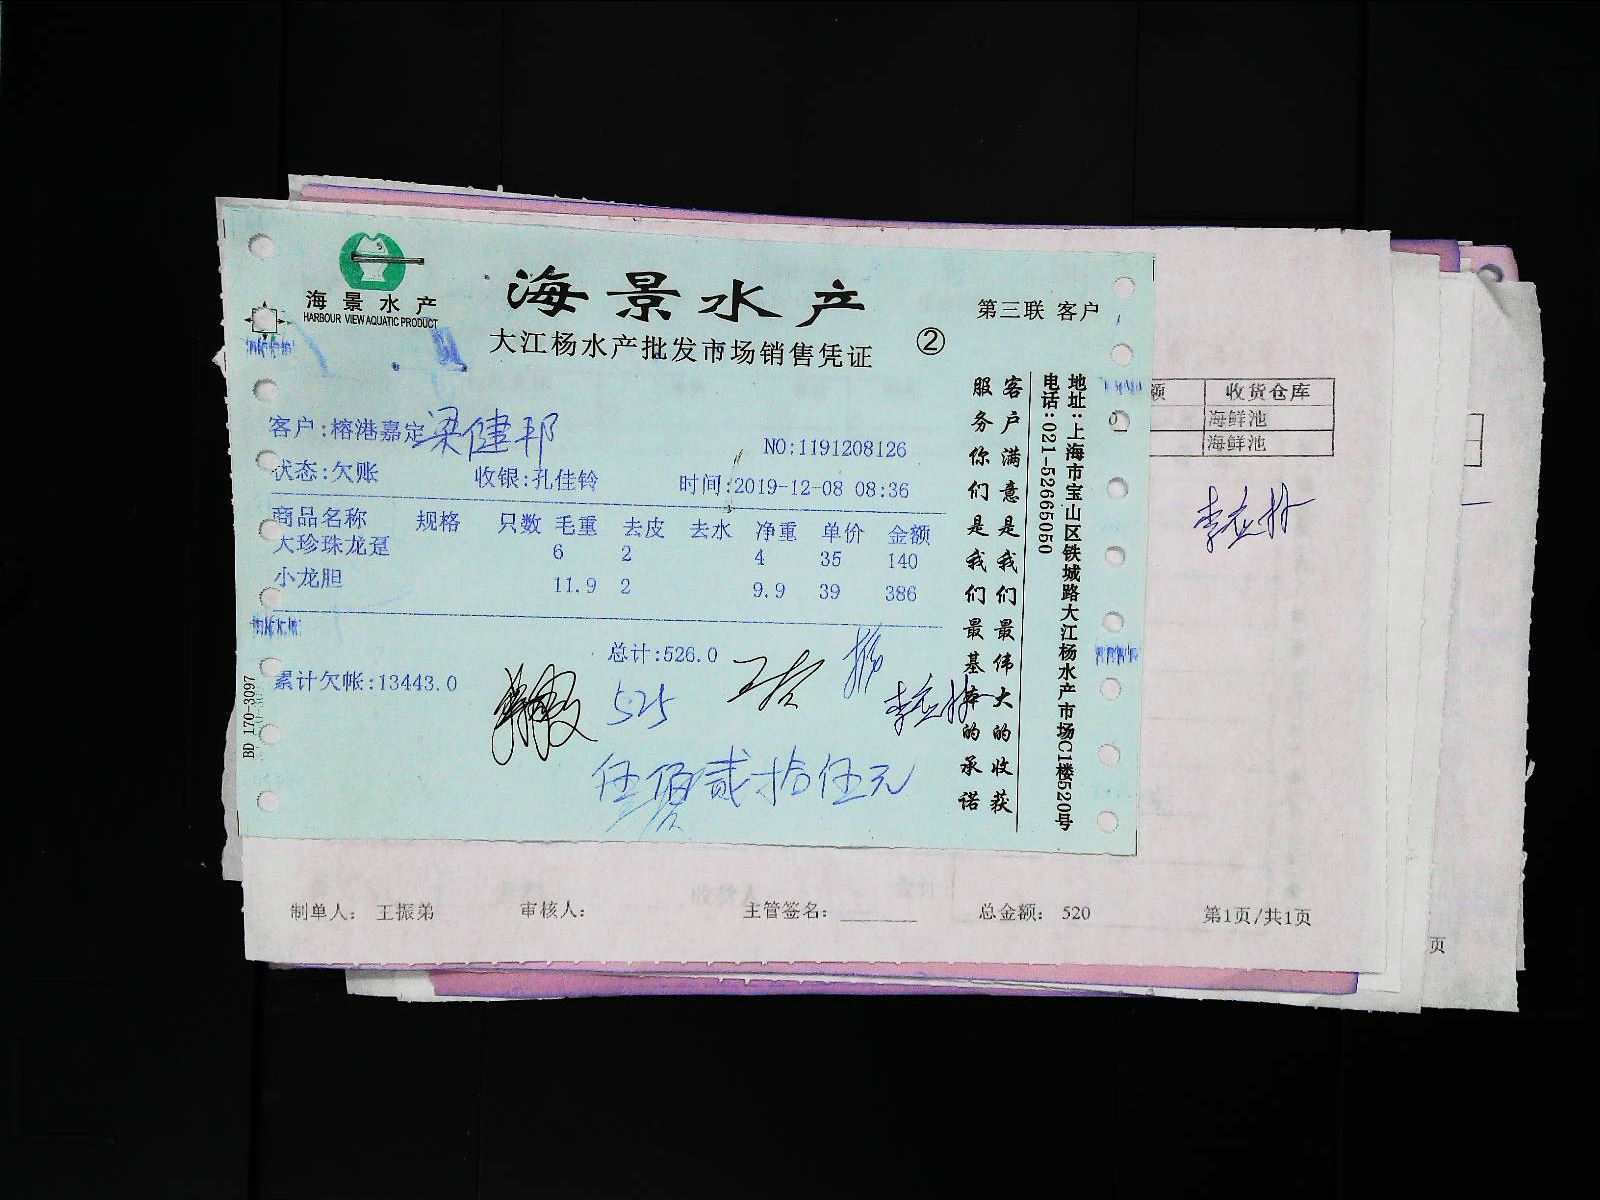 海景水产
HARBOUR VIEW AQUATIC PRODUCT
海景水产
大江杨水产批发市场销售凭证
②
第三联 客户
客户:榕港嘉定 梁健邦
NO:1191208126
状态:欠账 收银:孔佳铃 时间:2019-12-08 08:36
商品名称 规格 只数 毛重 去皮 去水 净重 单价 金额
大珍珠龙趸 6 2 4 35 140
小龙胆 11.9 2 9.9 39 386
总计:526.0
累计欠帐:13443.0
525
伍佰贰拾伍元
BD 170-3097
客户满意是我们最伟大的收获
服务你们是我们最基本的承诺
地址:上海市宝山区铁城路大江杨水产市场C1楼520号
电话:021-52665050
额 收货仓库
海鲜池
海鲜池
制单人: 王振弟 审核人: 主管签名: 总金额: 520 第1页/共1页
页